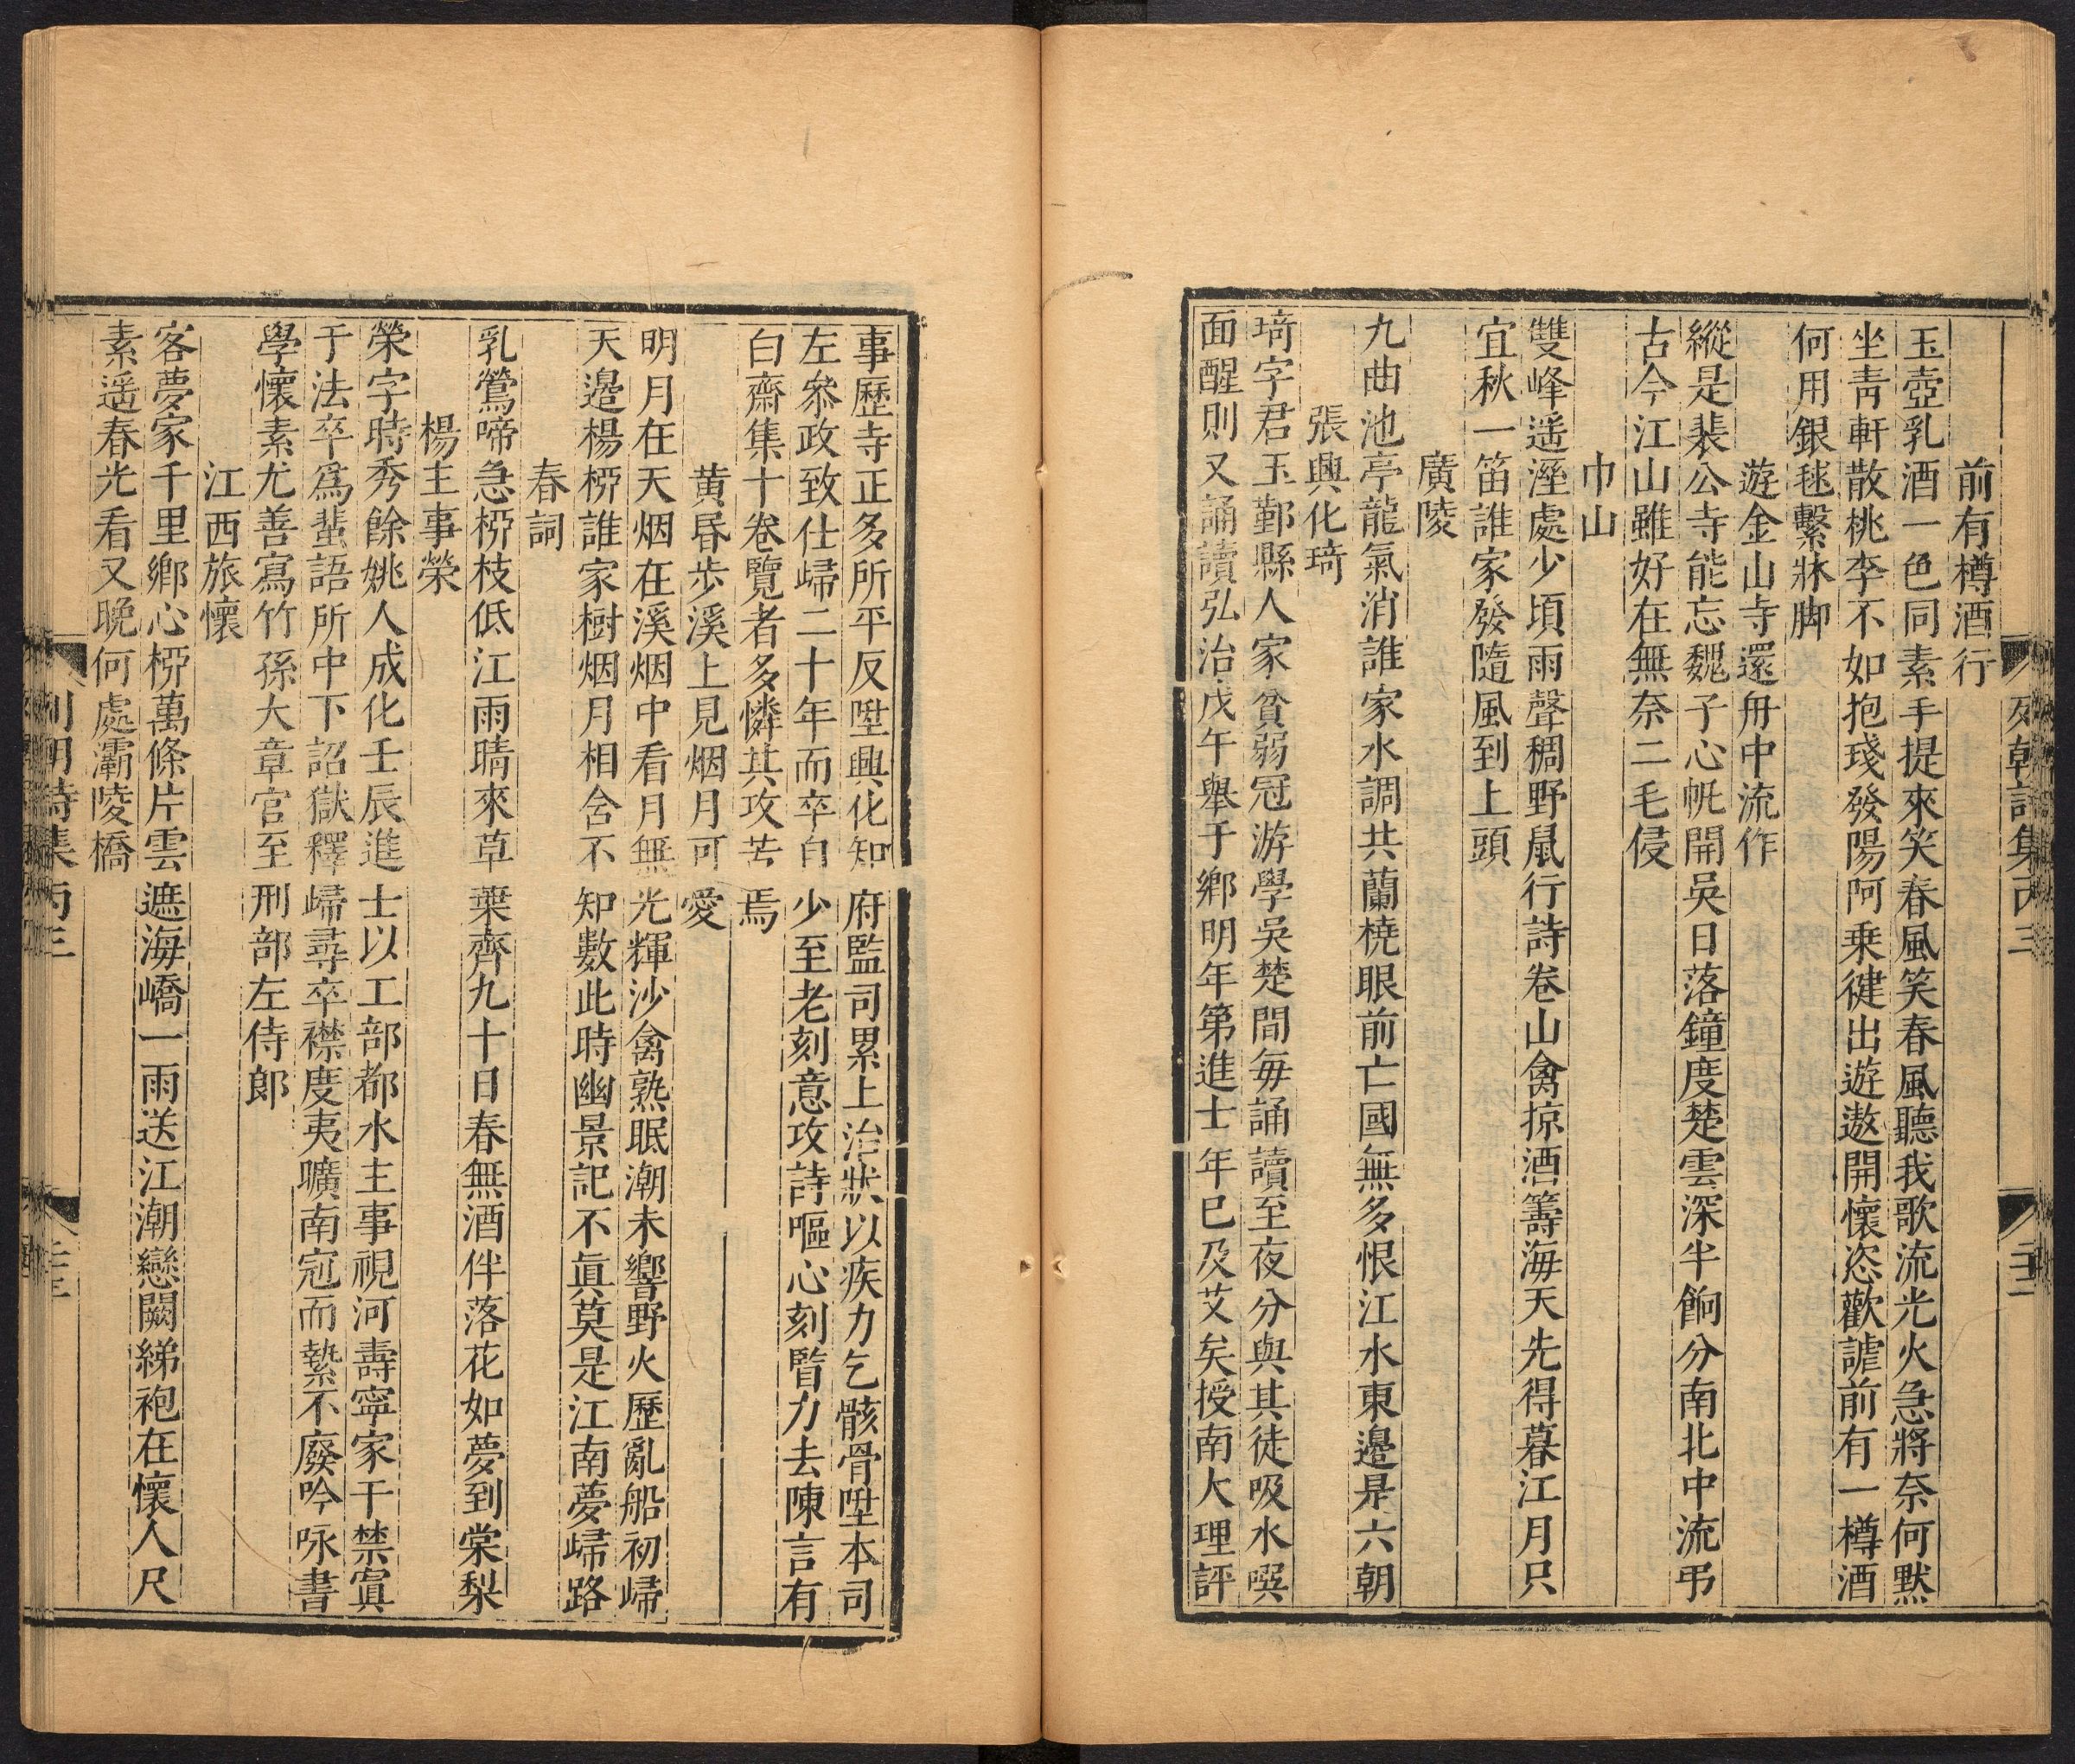 前有樽酒行
玉壺乳酒一色同素手提來笑春風笑春風聽我歌流光火急將奈何默
坐靑軒散桃李不如抱琖發陽阿乗徤出遊遨開懷恣歡謔前有一樽酒
何用銀毬繫牀脚
遊金山寺還舟中流作
縱是裴公寺能忘魏子心帆開吳日落鐘度楚雲深半餉分南北中流弔
古今江山雖好在無奈二毛侵
巾山
雙峰遥溼處少頃雨聲稠野鼠行詩卷山禽掠酒籌海天先得暮江月只
宜秋一笛誰家發隨風到上頭
廣陵
九曲池亭龍氣消誰家水調共蘭橈眼前亡國無多恨江水東邉是六朝
張興化琦
琦字君玉鄞縣人家貧弱冠游學吳楚間每誦讀至夜分與其徒吸水噀
面醒則又誦讀弘治戊午舉于鄉明年第進士年巳及艾矣授南大理評
事歷寺正多所平反陞興化知府監司累上治狀以疾力乞骸骨陞本司
左叅政致仕歸二十年而卒自少至老刻意攻詩嘔心刻腎力去陳言有
白齋集十卷覽者多憐其攻苦焉
黄昏歩溪上見烟月可愛
明月在天烟在溪烟中看月無光輝沙禽熟眠潮未響野火歷亂船初歸
天邉楊栁誰家樹烟月相含不知數此時幽景記不眞莫是江南夢歸路
春詞
乳鶯啼急栁枝低江雨晴來草葉齊九十日春無酒伴落花如夢到棠梨
楊主事榮
榮字時秀餘姚人成化壬辰進士以工部都水主事視河壽寧家干禁寘
于法卒爲蜚語所中下詔獄釋歸尋卒襟度夷曠南冠而縶不廢吟咏書
學懷素尤善寫竹孫大章官至刑部左侍郎
江西旅懷
客夢家千里鄉心栁萬條片雲遮海嶠一雨送江潮戀闕綈袍在懷人尺
素遥春光看又晚何處灞陵橋
列朝詩集丙三